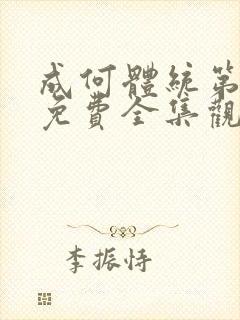 成何體統第
免費全集觀
李振恃